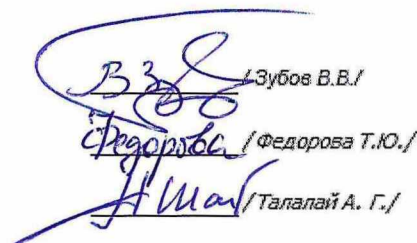 В З /Зубов В.В./
Федорова /Федорова Т.Ю./
/Талалай А. Г./